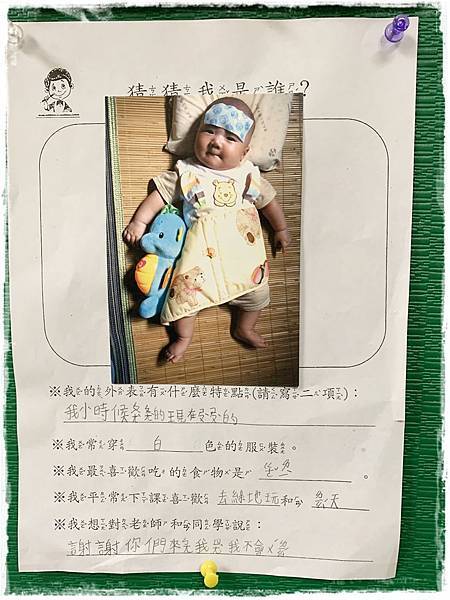 猜猜我是誰?
※我的外表有什麼特點(請寫二項):
我小時候 的現在 的
※我常穿 白 色的服裝。
※我最喜歡吃的食物是 。
※我平常下課喜歡 去綠地玩和 天
※我想對老師和同學說:
謝謝你們 我 我不會